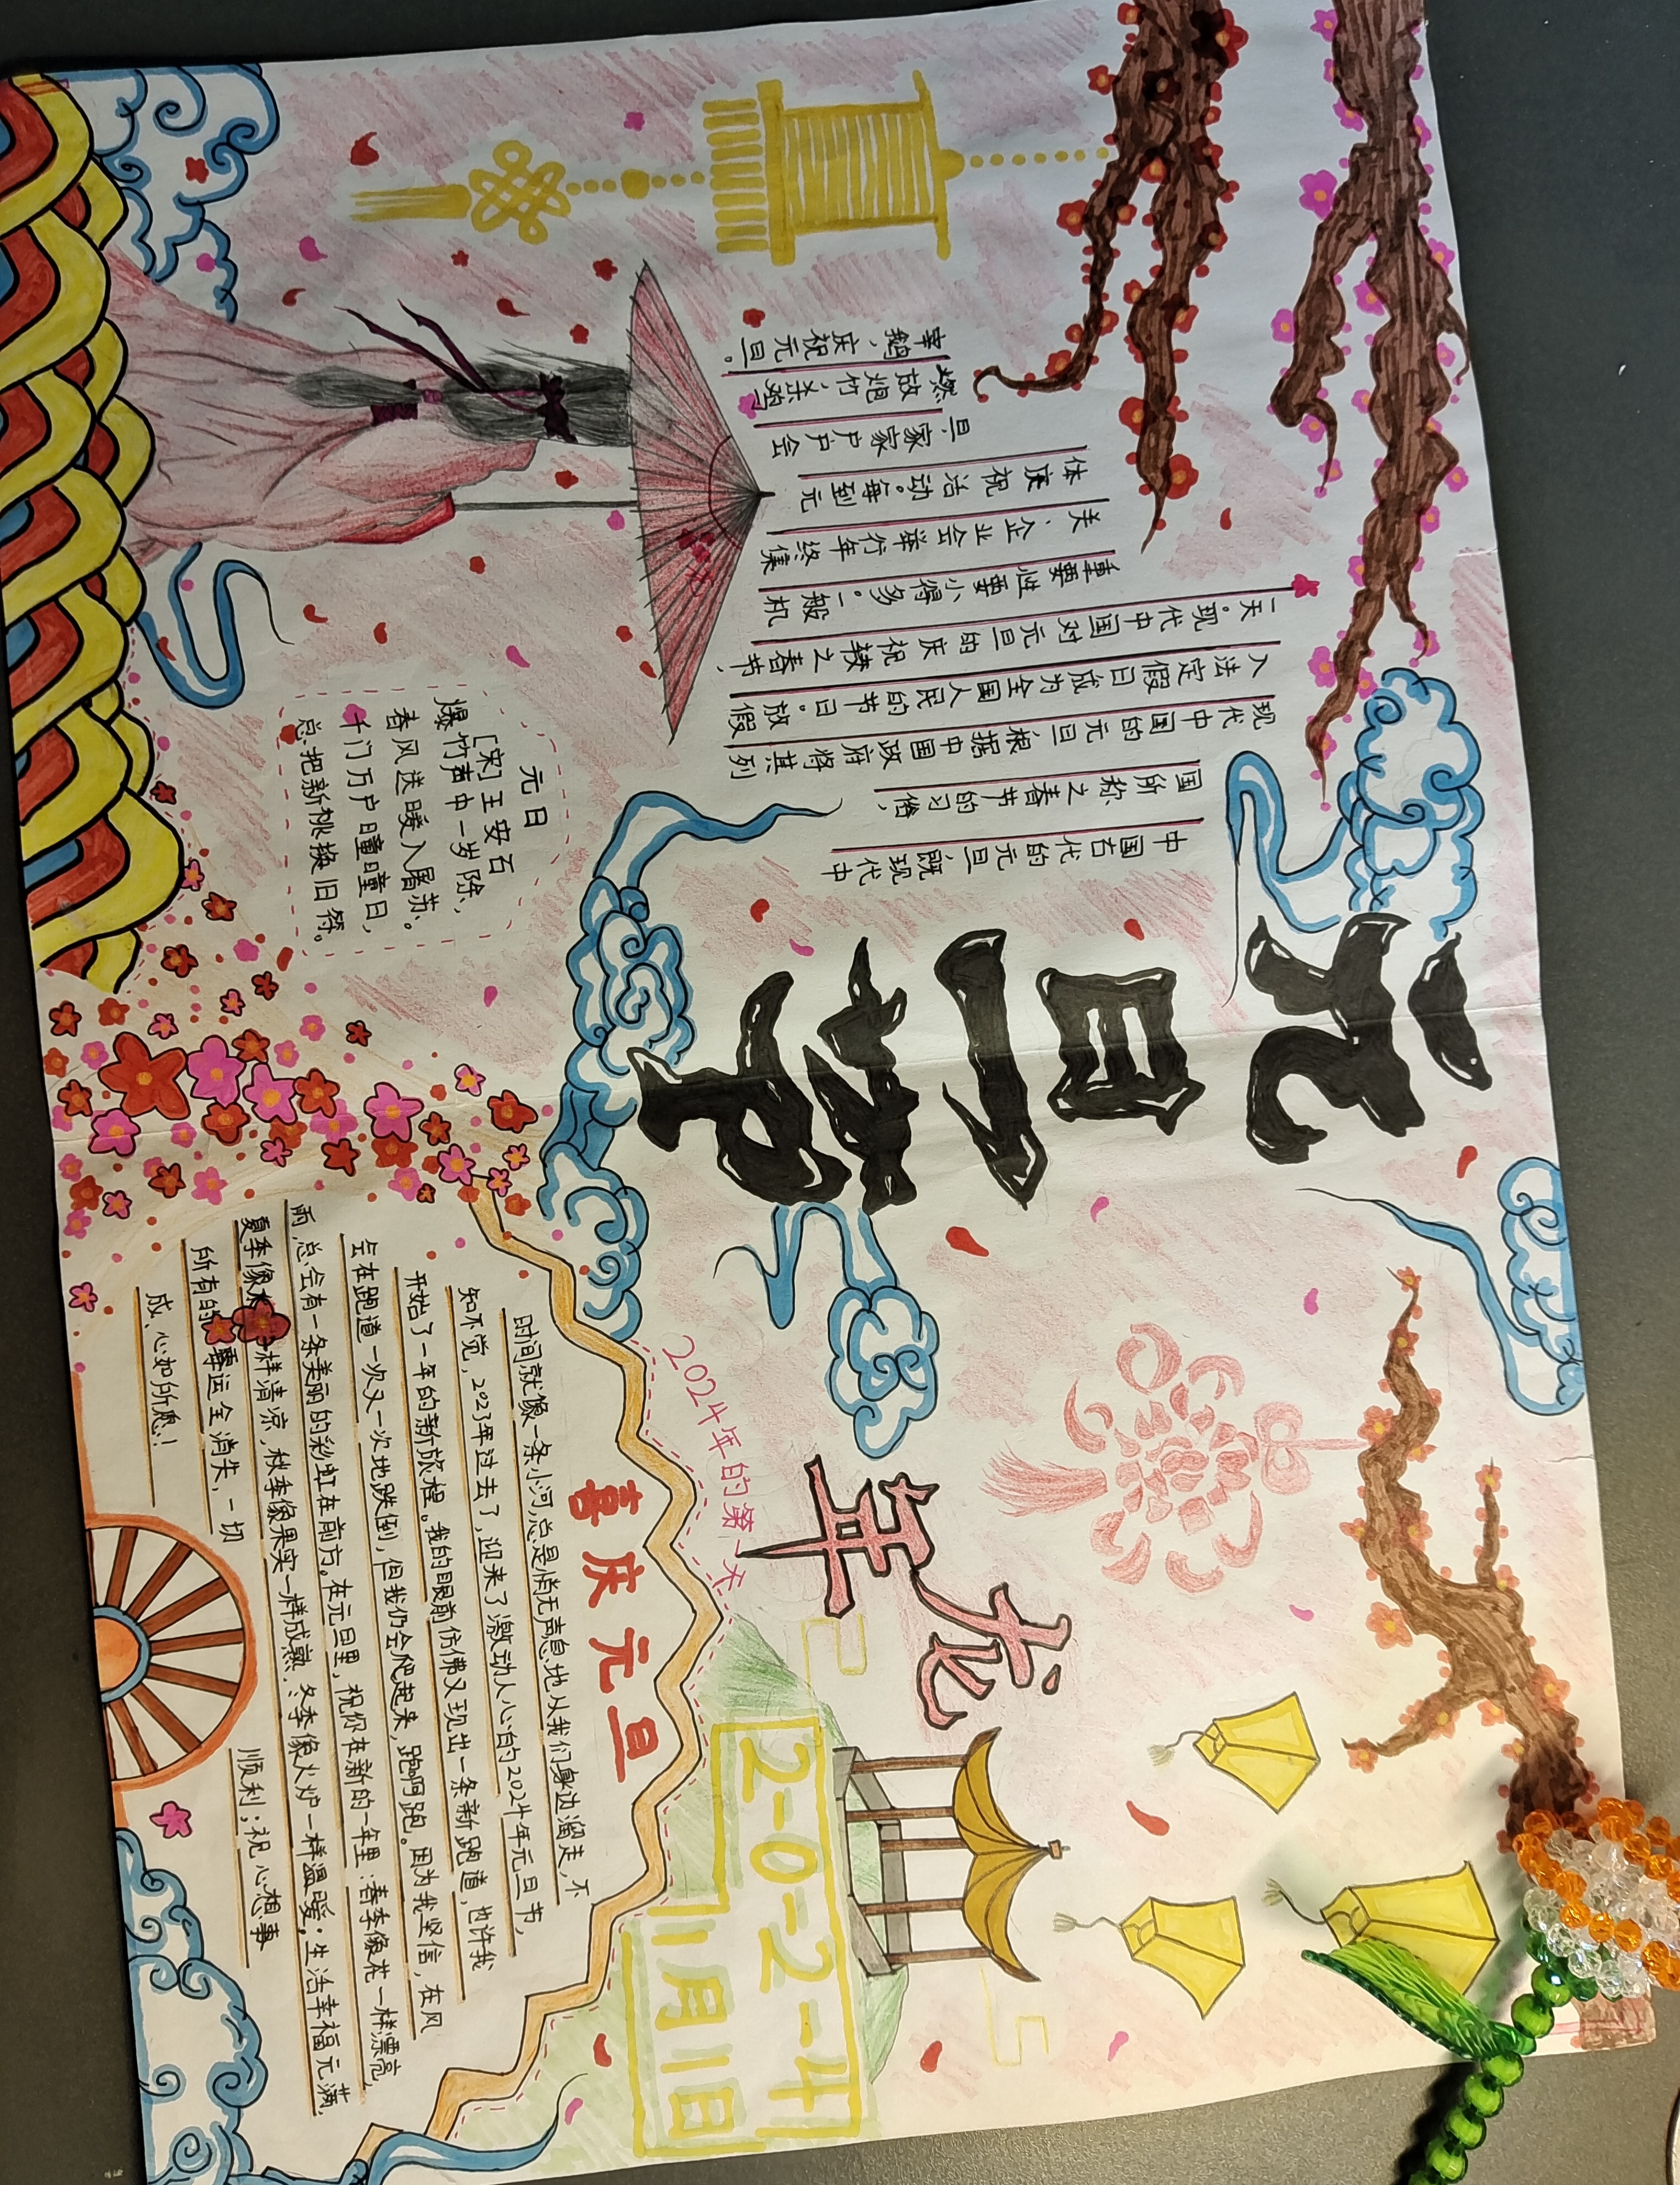 元旦节
中国古代的元旦既现代中
国所称之春节的习俗,
现代中国的元旦根据中国政府将其列
入法定假日成为全国人民的节日。放假
一天。现代中国对元旦的庆祝较之春节,
重要性要小得多。一般机
关、企业会举行年终集
体庆祝活动。每到元
旦,家家户户会
燃放炮竹,杀鸡
宰鹅,庆祝元旦。
元日
[宋]王安石
爆竹声中一岁除、
春风送暖入屠苏。
千门万户曈曈日,
总把新桃换旧符。
龙年
2024年的第一天
2-0-2-4
1月1日
喜庆元旦
时间就像一条小河,总是悄无声息地从我们身边溜走,不
知不觉,2023年过去了,迎来了激动人心的2024年元旦节,
开始了一年的新旅程。我的眼前仿佛又现出一条新跑道,也许我
会在跑道一次又一次地跌倒,但我仍会爬起来,跑啊跑。因为我坚信,在风
雨,总会有一条美丽的彩虹在前方。在元旦里,祝你在新的一年里:春季像花一样漂亮,
夏季像 样清凉,秋季像果实一样成熟,冬季像火炉一样温暖;生活幸福元满,
所有的霉运全消失,一切 顺利;祝心想事
成、心如所愿!